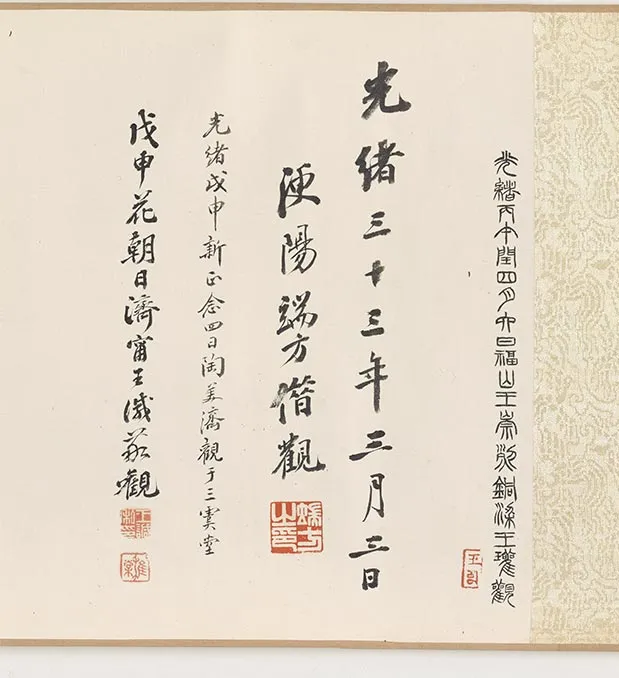 光緒丙午閏四月六日福山王崇烈銅梁王瓘觀
光緒三十三年三月三日
浭陽端方借觀
端方之印
光緒戊申新正念四日陶美濟觀于三虞堂
戊申花朝日濟甯王敬觀